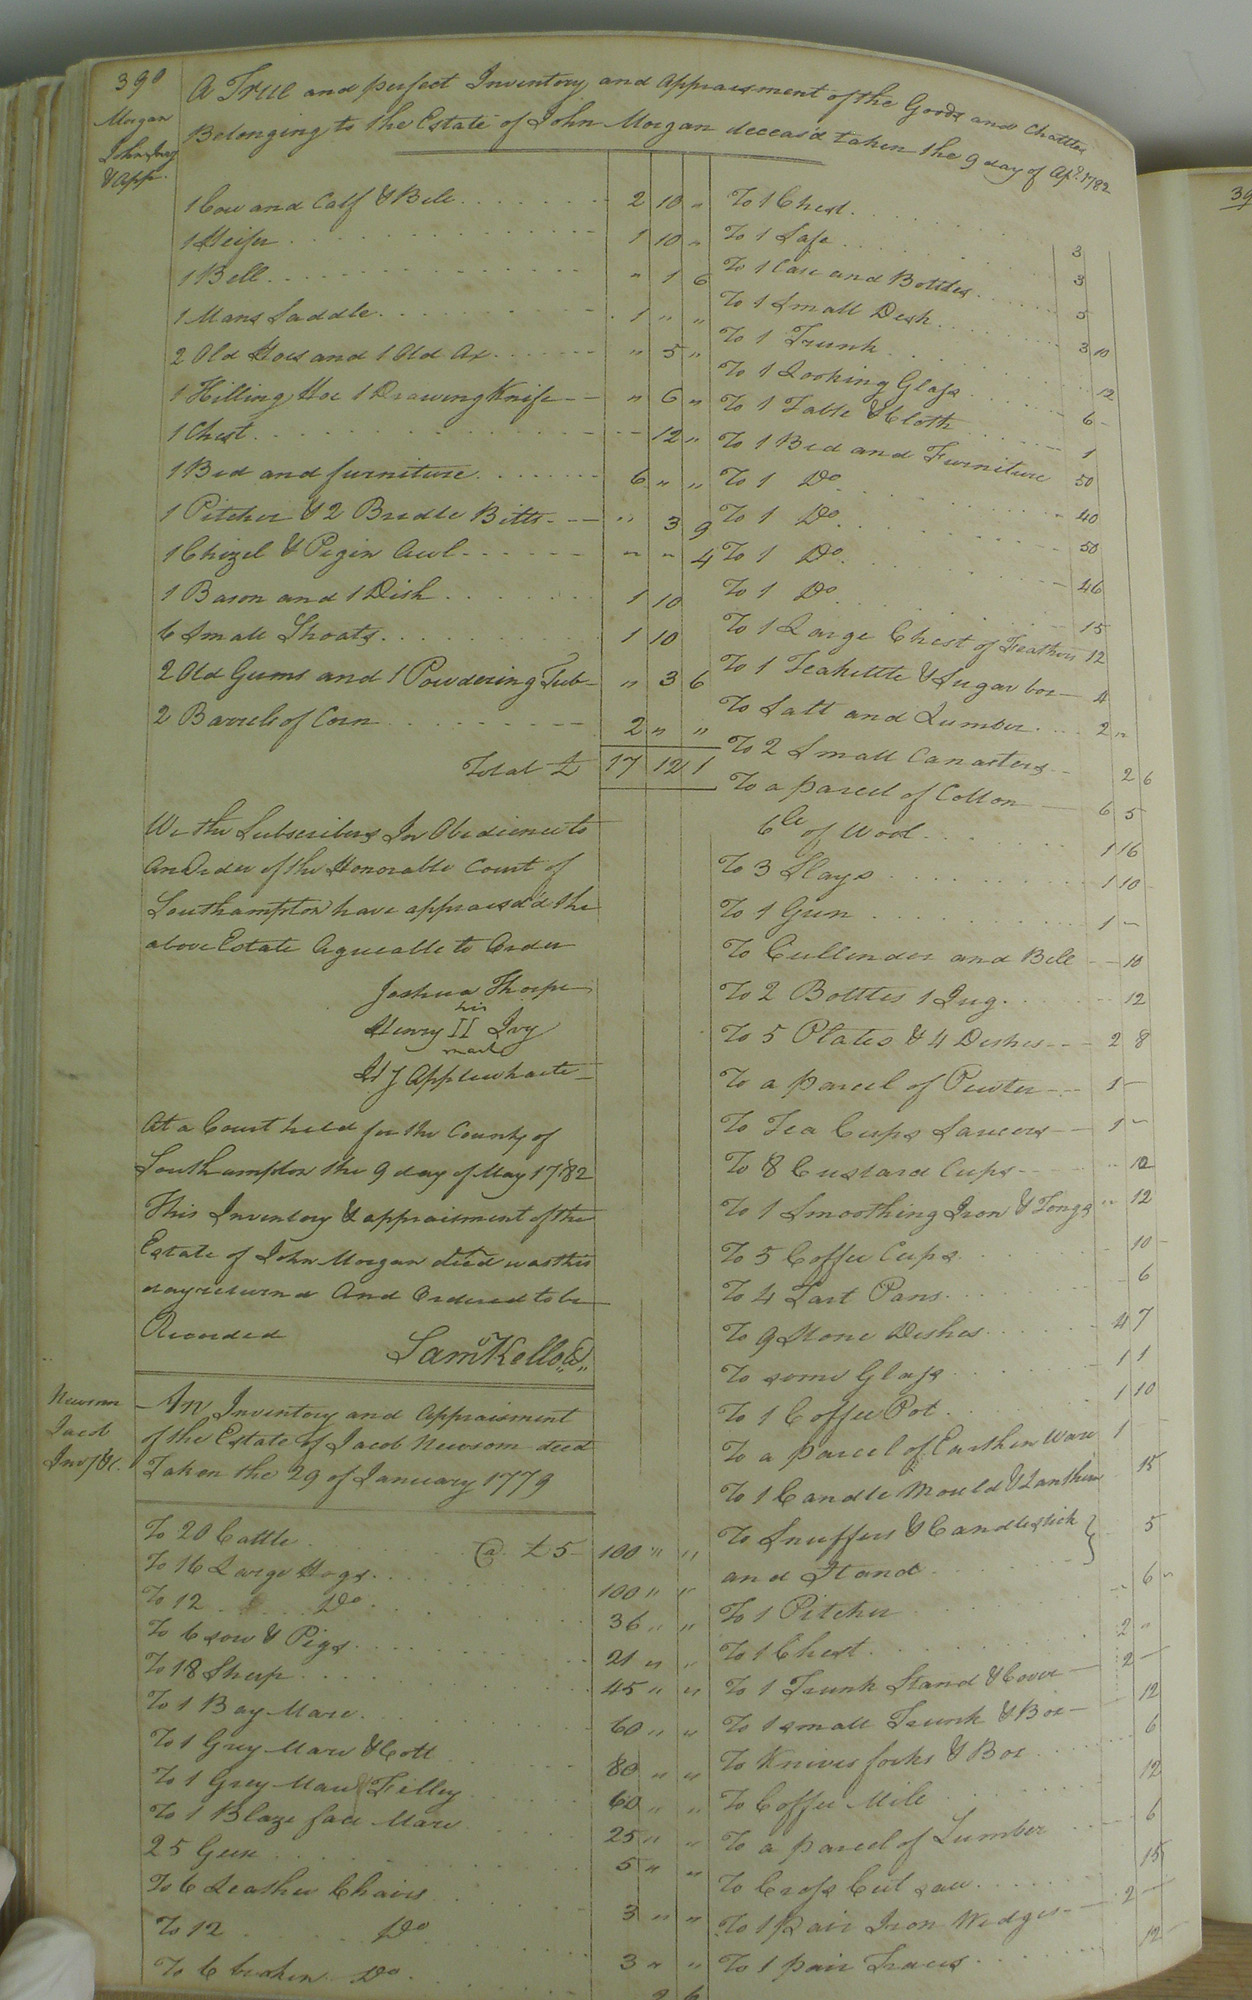 390
Morgan
John Invy
& App.
A True and perfect Inventory and Appraisment of the Goods and Chattles
Belonging to the Estate of John Morgan deceasd taken the 9 day of Apl. 1782
1 Cow and Calf & Bell 2 10 "
1 Heifer 1 10 "
1 Bell " 1 6
1 Mans Saddle 1 " "
2 Old Hoes and 1 Old Ax " 5 "
1 Hilling Hoe 1 Drawing Knife " 6 "
1 Chest 12 "
1 Bed and furniture 6 " "
1 Pitcher & 2 Bridle Bitts " 3 9
1 Chizel & Pegin Awl " " 4
1 Bason and 1 Dish 1 10
6 Small Shoats 1 10
2 Old Gums and 1 Powdering Tub " 3 6
2 Barrels of Corn 2 " "
Total £ 17 12 1
We the Subscribers In Obedience to
an Order of the Honorable Court of
Southampton have appraisd'd the
above Estate Agreeable to Order
Joshua Thorpe
his
Henry II Ivy
mark
H J Applewhaite
At a Court held for the County of
Southampton the 9 day of May 1782
This Inventory & appraisment of the
Estate of John Morgan decd was this
day returnd And Ordered to be
Recorded
Saml Kello
Newsom
Jacob
Inv &c.
An Inventory and Appraisment
of the Estate of Jacob Newsom decd
Taken the 29 of January 1779
To 20 Cattle @ £5 100 " "
To 16 Large Hogs 100 " "
To 12 Do 36 " "
To 6 sow & Pigs 21 " "
To 18 Sheep 45 " "
To 1 Bay Mare 60 " "
To 1 Grey Mare & Colt 80 " "
To 1 Grey Mare Filley 60 " "
To 1 Blaze face Mare 25 " "
25 Geese 5 " "
To 6 Leather Chairs 3 " "
To 12 Do 3 " "
To 6 broken Do
To 1 Chest 3
To 1 Safe 3
To 1 Case and Bottles 5
To 1 Small Desk 3 10
To 1 Trunk 12
To 1 Looking Glass 6
To 1 Table & Cloth 1
To 1 Bed and Furniture 50
To 1 Do 40
To 1 Do 50
To 1 Do 46
To 1 Do 15
To 1 Large Chest of Feathers 12
To 1 Teakittle & Sugar box 4
To Salt and Lumber 2 "
To 2 Small Canasters 2 6
To a parcel of Cotton 6 5
6 lb of Wool 1 16
To 3 Slays 1 10
To 1 Gun 1
To Cullender and Bell 10
To 2 Bottles 1 Jug 12
To 5 Plates & 4 Dishes 2 8
To a parcel of Pewter 1
To Tea Cups Saucers 1
To 8 Custard Cups 12
To 1 Smoothing Iron & Tongs 12
To 5 Coffee Cups 10
To 4 Tart Pans 6
To 9 Stone Dishes 4 7
To some Glass 1 1
To 1 Coffee Pot 1 10
To a parcel of Earthen Ware 1
To 1 Candle Mould & Lanthorn 15
To Snuffers & Candlestick
and Stand 5
To 1 Pitcher 6
To 1 Chest 2 "
To 1 Trunk Stand & Cover 2
To 1 small Trunk & Box 12
To Knives forks & Box 6
To Coffee Mill 12
To a parcel of Lumber 6
To Cross Cut saw 15
To 1 pair Iron Wedges 2
To 1 pair Traces 12
39